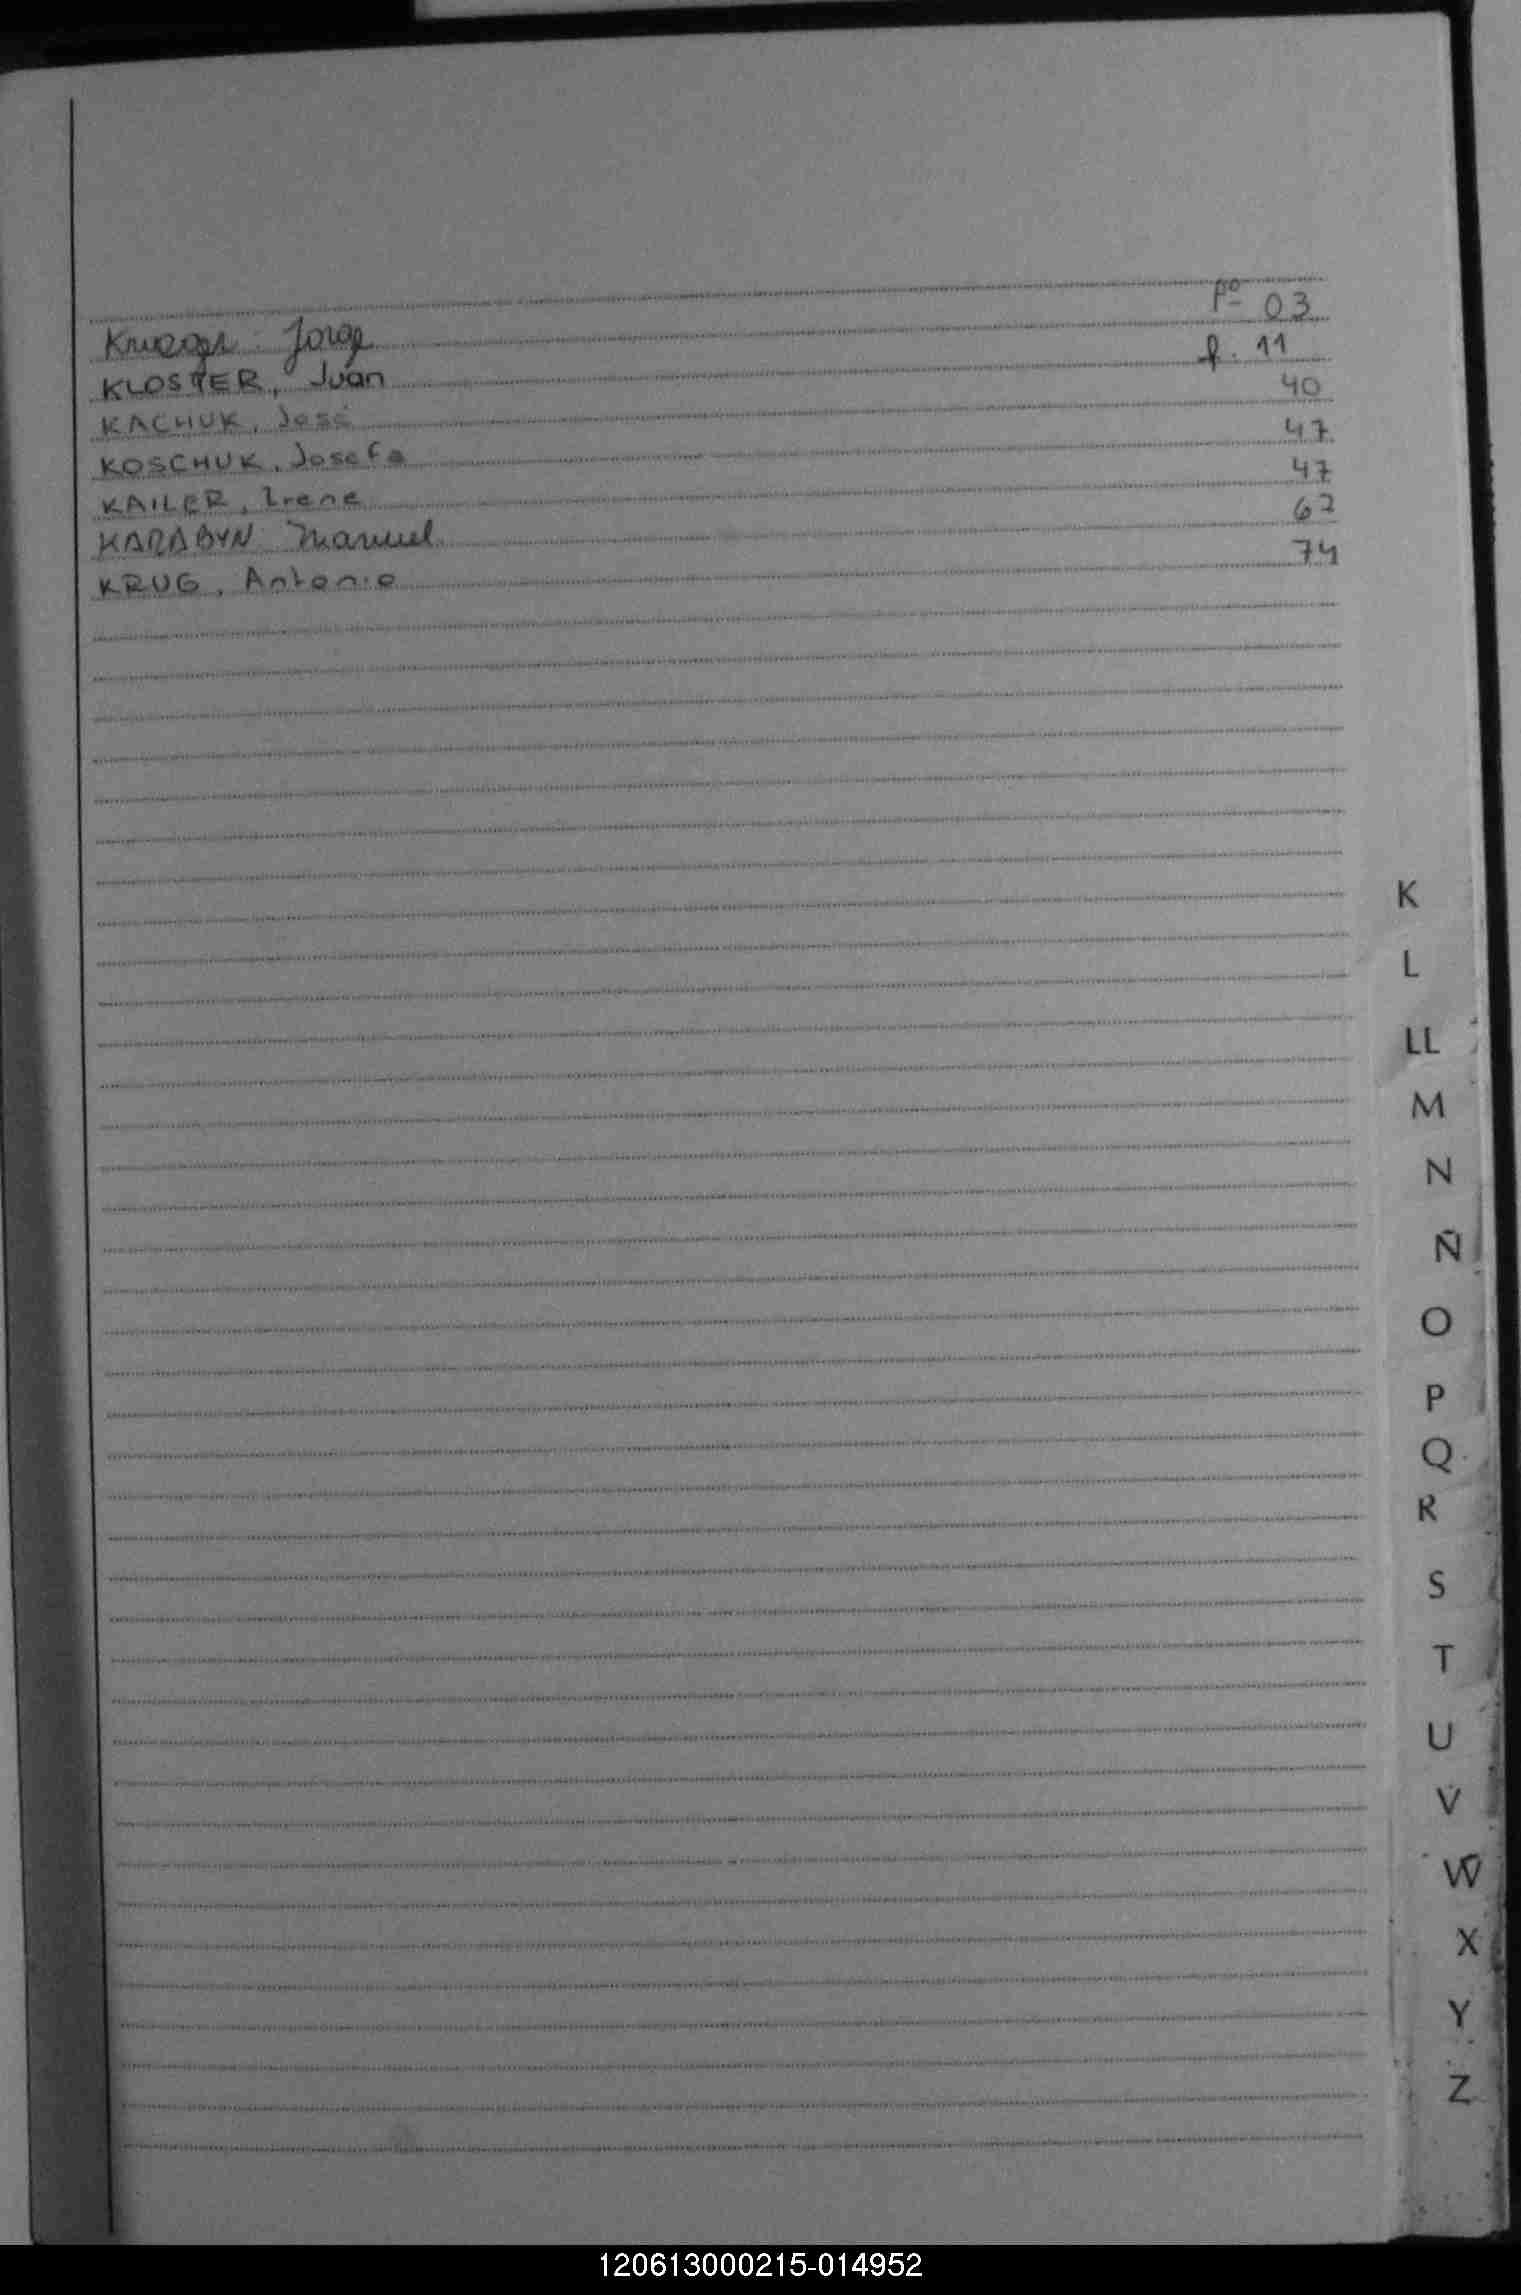 Krueger Jorge Fº 03
KLOSTER, Juan f. 11
KACHUK, José 40
KOSCHUK, Josefa 47
KAILER, Irene 47
KARABYN Manuel 67
KRUG, Antonio 74
K
L
LL
M
N
Ñ
O
P
Q
R
S
T
U
V
W
X
Y
Z
120613000215-014952